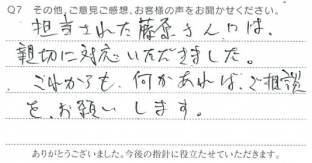 Q7 その他、ご意見ご感想、お客様の声をお聞かせください。
担当された藤原さんには、
親切に対応いただきました。
これからも、何かあれば、ご相談
を、お願いします。
ありがとうございました。今後の指針に役立たせていただきます。